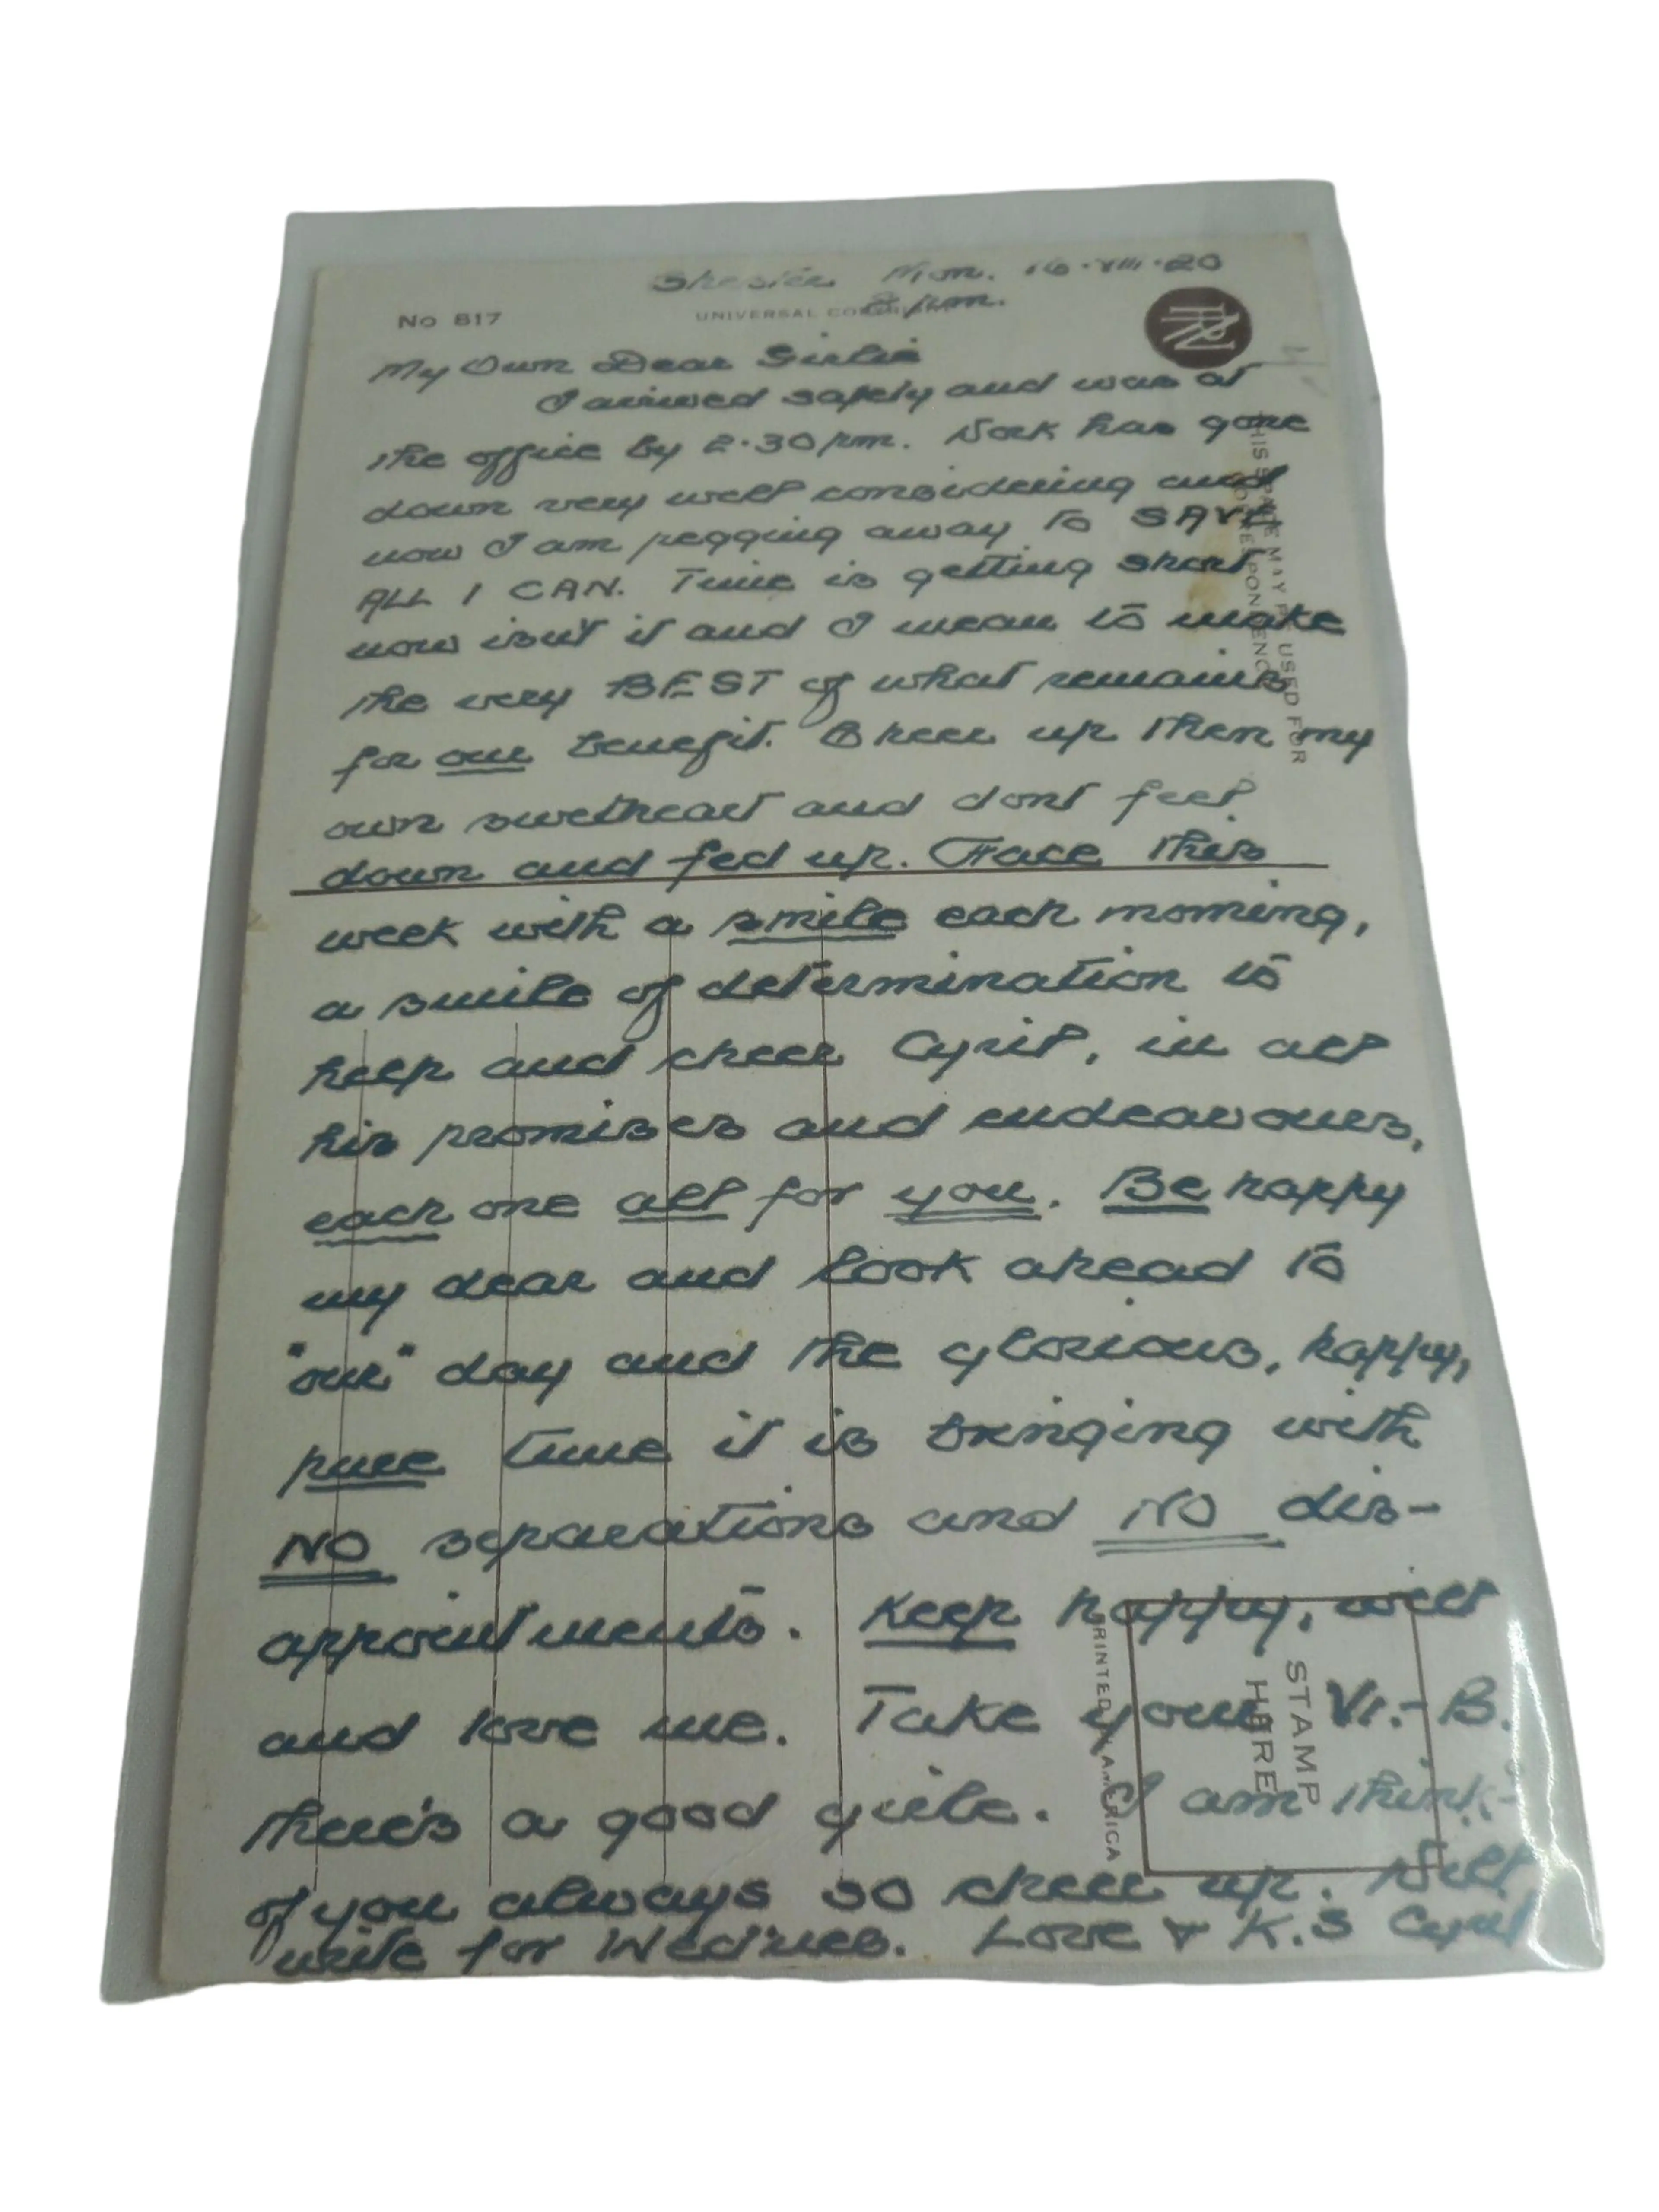 Mon. 16·VIII·20
8 pm.
No 817
UNIVERSAL
My Own Dear Girlie
I arrived safely and was at
the office by 2·30 pm. Work has gone
down very well considering and
now I am pegging away to SAVE
ALL I CAN. Time is getting short
now isn't it and I mean to make
the very BEST of what remains
for our benefit. Cheer up then my
own swetheart and dont feel
down and fed up. Face this
week with a smile each morning,
a smile of determination to
help and cheer Cyril, in all
his promises and endeavours,
each one all for you. Be happy
my dear and look ahead to
"our" day and the glorious, happy,
pure time it is bringing with
NO separations and NO dis-
appointments. Keep happy, well
and love me. Take your Vi.-B.
there's a good girlie. I am think-
of you always so cheer up. Will
write for Wed'nes. Love & K.S Cyril
THIS SPACE MAY BE USED FOR
CORRESPONDENCE
PRINTED IN AMERICA
STAMP
HERE